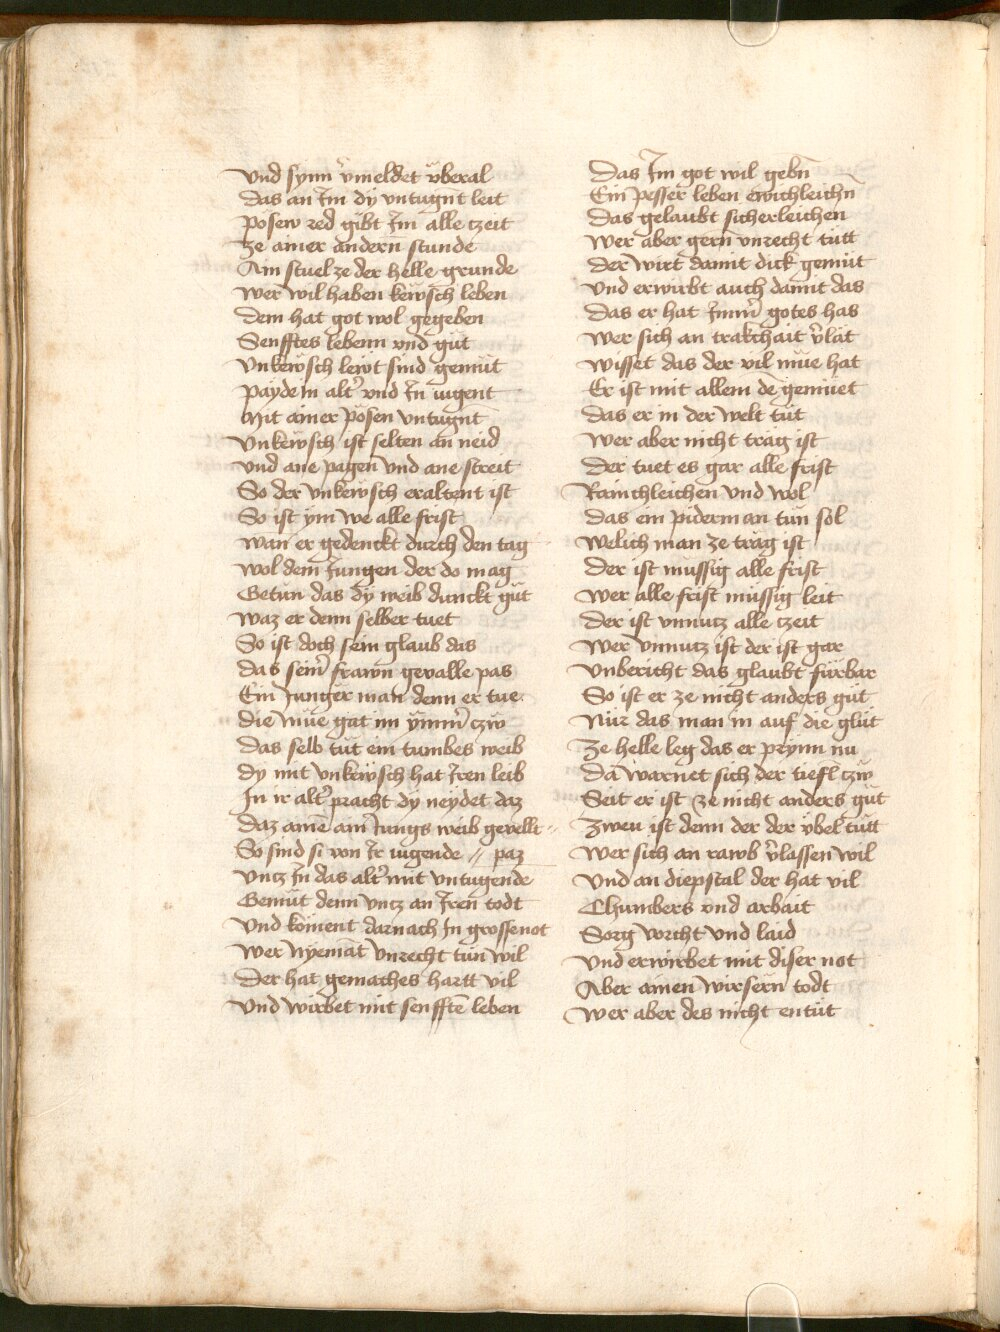 Vnd synn v̄meldet vberal
Das an Jm dÿ vntugn̄t leit
Posew red gibt Jm alle czeit
Ze ainer andern̄ stunde
Ain stuel ze der helle grunde
Wer wil haben kewsch leben
Dem hat got wol gegeben
Senfftes lebenn vnd gůt
Vnkewsch lewt sind gemůt
Payde in alt̄ vnd Jn iugent
Mit ainer posen vntugn̄t
Vnkewsch ist selten an neid
Vnd ane pagen vnd ane streit
So der vnkewsch eraltent ist
So ist ym we alle frist
Wan er gedenckt durch den tag
Wol dem Jungen der do mag
Getun das dÿ weib dunckt gůt
Waz er denn selber tuet
So ist doch sein glaub das
Das sein̄ frawn geualle pas
Ein Junger man denn er tue
Die mue gat im ÿmm̄ czw
Das selb tůt ein tumbes weib
Dy mit vnkewsch hat Jren leib
Jn ir alt̄ pracht dÿ neydet daz
Daz aine ain Jungs weib geuellt
So sind si von Jr iugende // paz
Vncz Jn das alt̄ mit vntugende
Gemůt denn vncz an Jren todt
Vnd kōment darnach Jn grosse not
Wer nyemāt vnrecht tůn wil
Der hat gemaches hartt vil
Vnd wirbet mit senfftē leben
Das Jm got wil gebn̄
Ein pesser leben ewichleichn̄
Das gelaubt sicherleichen
Wer aber gern vnrecht tůtt
Der wirt damit dick gemůt
Vnd erwirbt auch damit das
Das er hat Jmm̄ gotes has
Wer sich an trakchait v̄lat
Wisset das der vil můe hat
Er ist mit allem de gemůet
Das er in der welt tůt
Wer aber nicht trag ist
Der tuet es gar alle frist
Rainchleichen vnd wol
Das ein piderman tůn sol
Welich man ze trag ist
Der ist mussig alle frist
Wer alle frist mussig leit
Der ist vnnucz alle czeit
Wer vnnucz ist der ist gar
Vnbericht das glaubt fůrbar
So ist er ze nicht anders gůt
Nůr das man in auf die glůt
Ze helle leg das er prynn nu
Da warnet sich der tiefl czw
Seit er ist ze nicht anders gůt
Zweu ist denn der der vbel tůtt
Wer sich an rawb v̄lassen wil
Vnd an diepstal der hat vil
Chumbers vnd arbait
Sorg vorcht vnd laid
Vnd erwirbet mit diser not
Aber ainen wirsern todt
Wer aber des nicht entůt